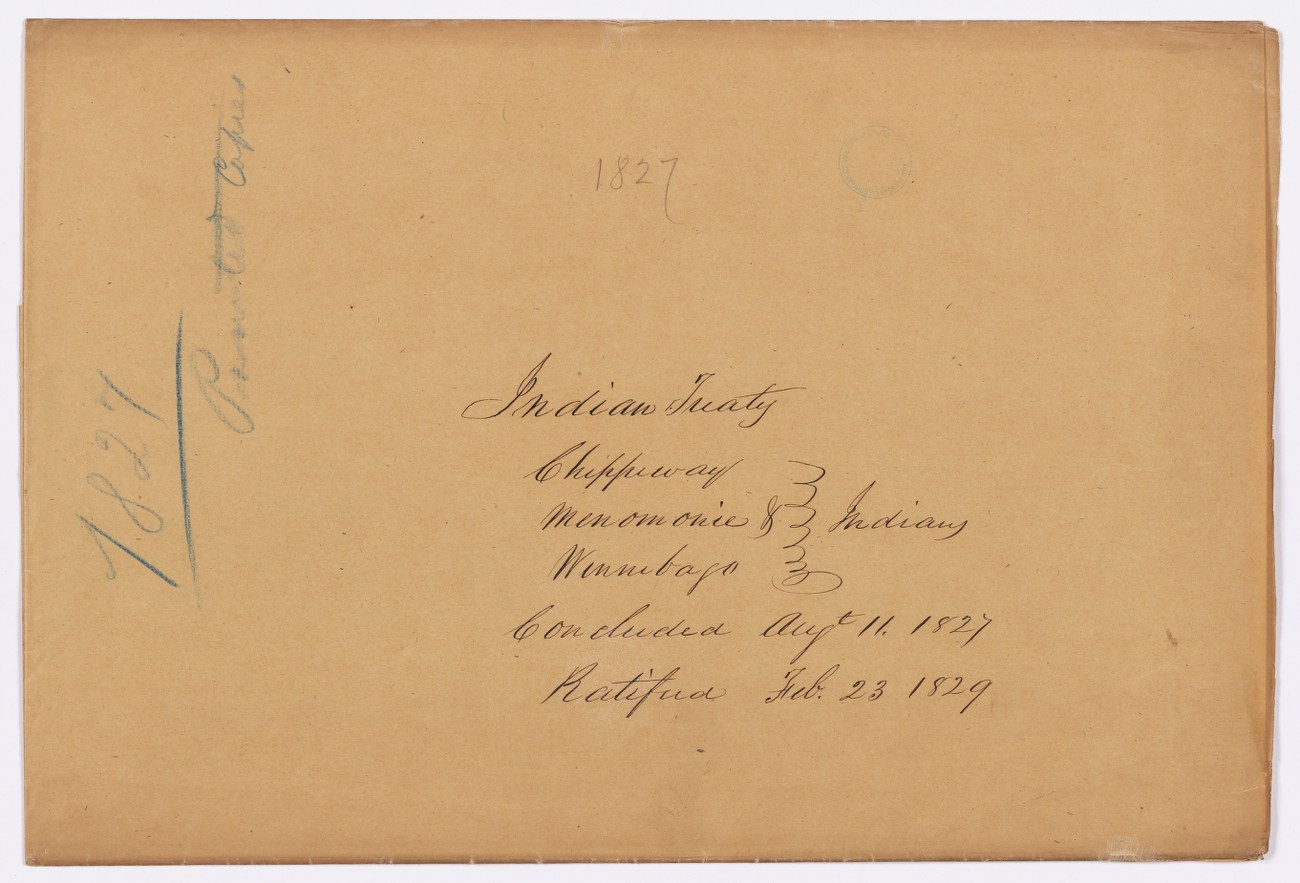 1827
Printed Copies
1827
Indian Treaty
Chippeway
Menomonie & Indians
Winnebago
Concluded Augt 11. 1827
Ratified Feb. 23 1829